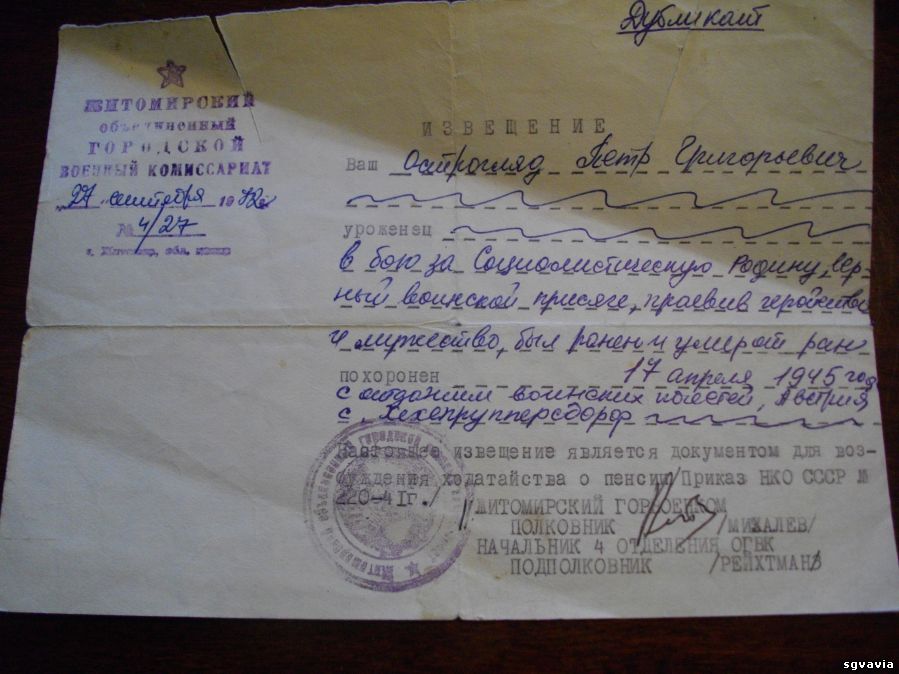 Дубликат
ЖИТОМИРСКИЙ
объединенный
ГОРОДСКОЙ
ВОЕННЫЙ КОМИССАРИАТ
"27" сентября 19
№ 4/27
г. Житомир, обл.
ИЗВЕЩЕНИЕ
Ваш Острогляд Петр Григорьевич
уроженец
в бою за Социалистическую Родину, вер-
ный воинской присяге, проявив геройство
и мужество, был ранен и умер от ран
похоронен 17 апреля 1945 год
с отданием воинских почестей, Австрия
с.
Настоящее извещение является документом для воз-
буждения ходатайства о пенсии/Приказ НКО СССР №
220-41г./
ЖИТОМИРСКИЙ ГОРВОЕНКОМ
ПОЛКОВНИК /МИХАЛЕВ/
НАЧАЛЬНИК 4 ОТДЕЛЕНИЯ ОГВК
ПОДПОЛКОВНИК /РЕЙХТМАН/
sgvavia